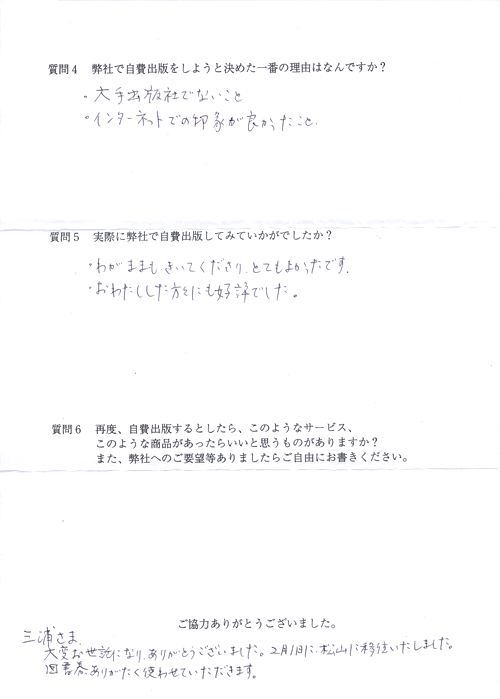 質問4 弊社で自費出版をしようと決めた一番の理由はなんですか?
・大手出版社でないこと
・インターネットでの印象が良かったこと.
質問5 実際に弊社で自費出版してみていかがでしたか?
・わがままもきいてくださり、とてもよかったです.
・おわたしした方々にも好評でした。
質問6 再度、自費出版するとしたら、このようなサービス、
このような商品があったらいいと思うものがありますか?
また、弊社へのご要望等ありましたらご自由にお書きください。
ご協力ありがとうございました。
三浦さま.
大変お世話になり、ありがとうございました。2月1日に、松山に移住いたしました。
図書券ありがたく使わせていただきます。